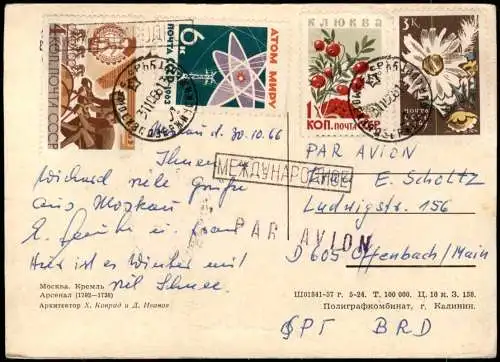 4 КОП. ПОЧТА СССР
6К ПОЧТА СССР 1963
АТОМ МИРУ
КЛЮКВА
1 КОП. ПОЧТА СССР
3К
ПОЧТА
МЕЖДУНАРОДНОЕ
PAR AVION
Moskau d. 30.10.66
Ihnen
viele Grüße
aus Moskau
u. Frau
Hier ist es Winter mit
viel Schnee.
PAR AVION
E. Scholtz
Ludwigstr. 156
D 605 Offenbach/Main
ФРГ BRD
Москва. Кремль
Арсенал (1702—1736)
Архитектор Х. Конрад и Д. Иванов
Ш01841-57 г. 5-24. Т. 100 000. Ц. 10 к. З. 158.
Полиграфкомбинат, г. Калинин.